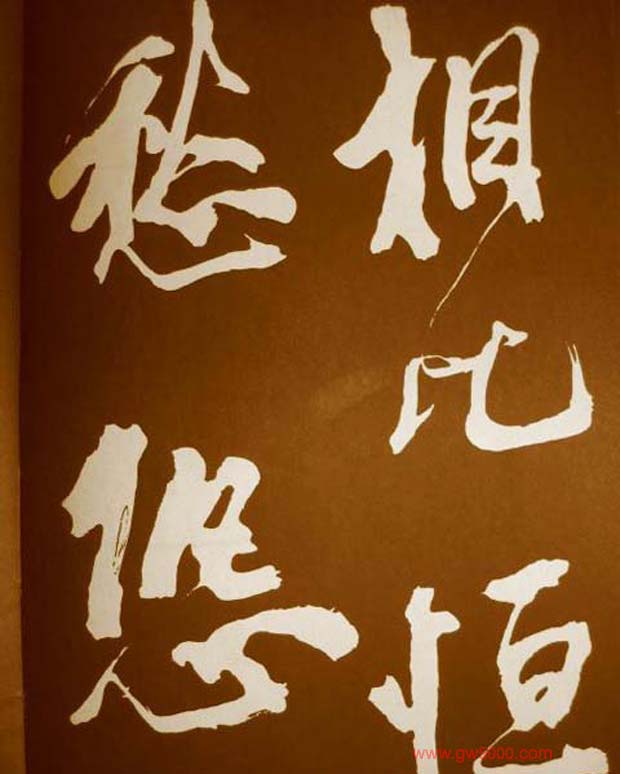 相比恒
愁悠
www.gw5000.com